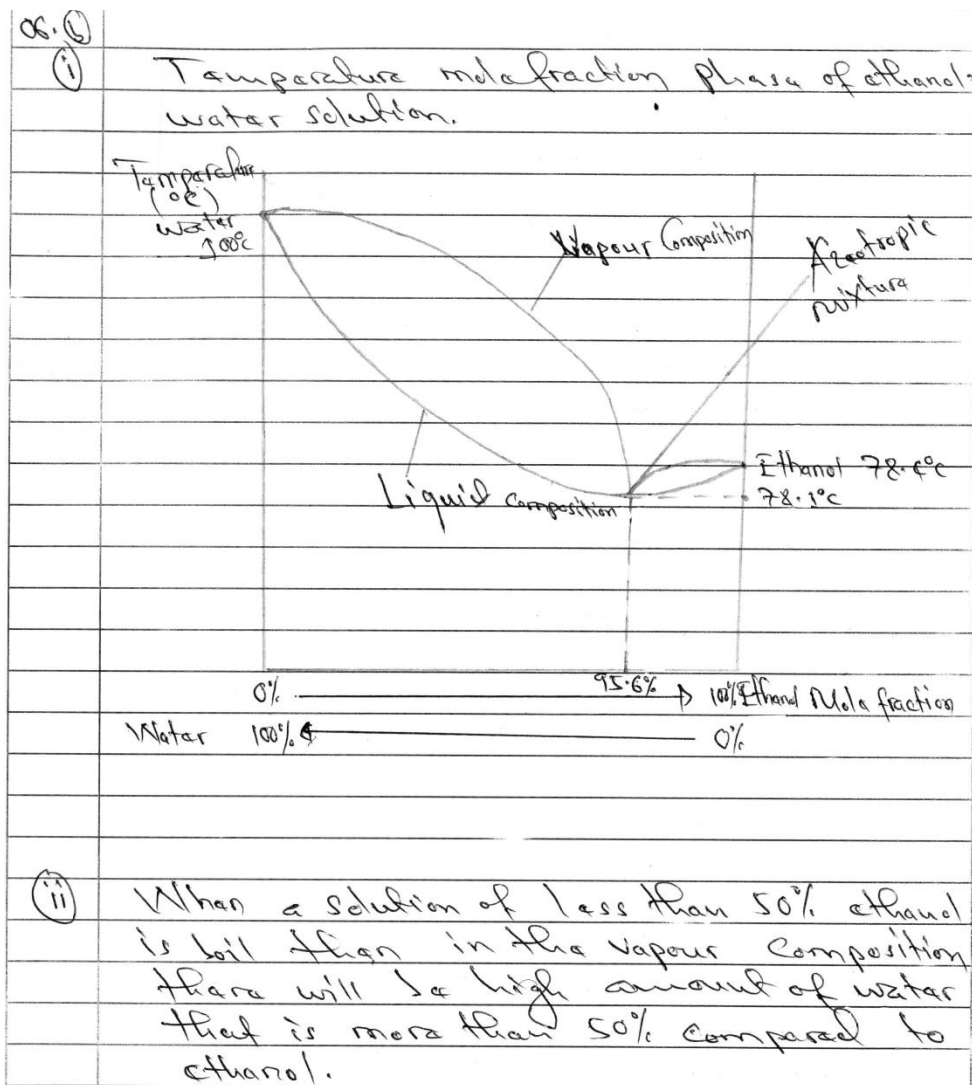 06. b
i Temperature mole fraction phase of ethanol-
water solution.
Temperature
(°C)
Water
100°c
Vapour Composition
Azeotropic
mixture
Ethanol 78.4°c
78.1°c
Liquid composition
0% 95.6% 100% Ethanol Mole fraction
Water 100% 0%
ii When a solution of less than 50% ethanol
is boil then in the vapour composition
there will be high amount of water
that is more than 50% compared to
ethanol.